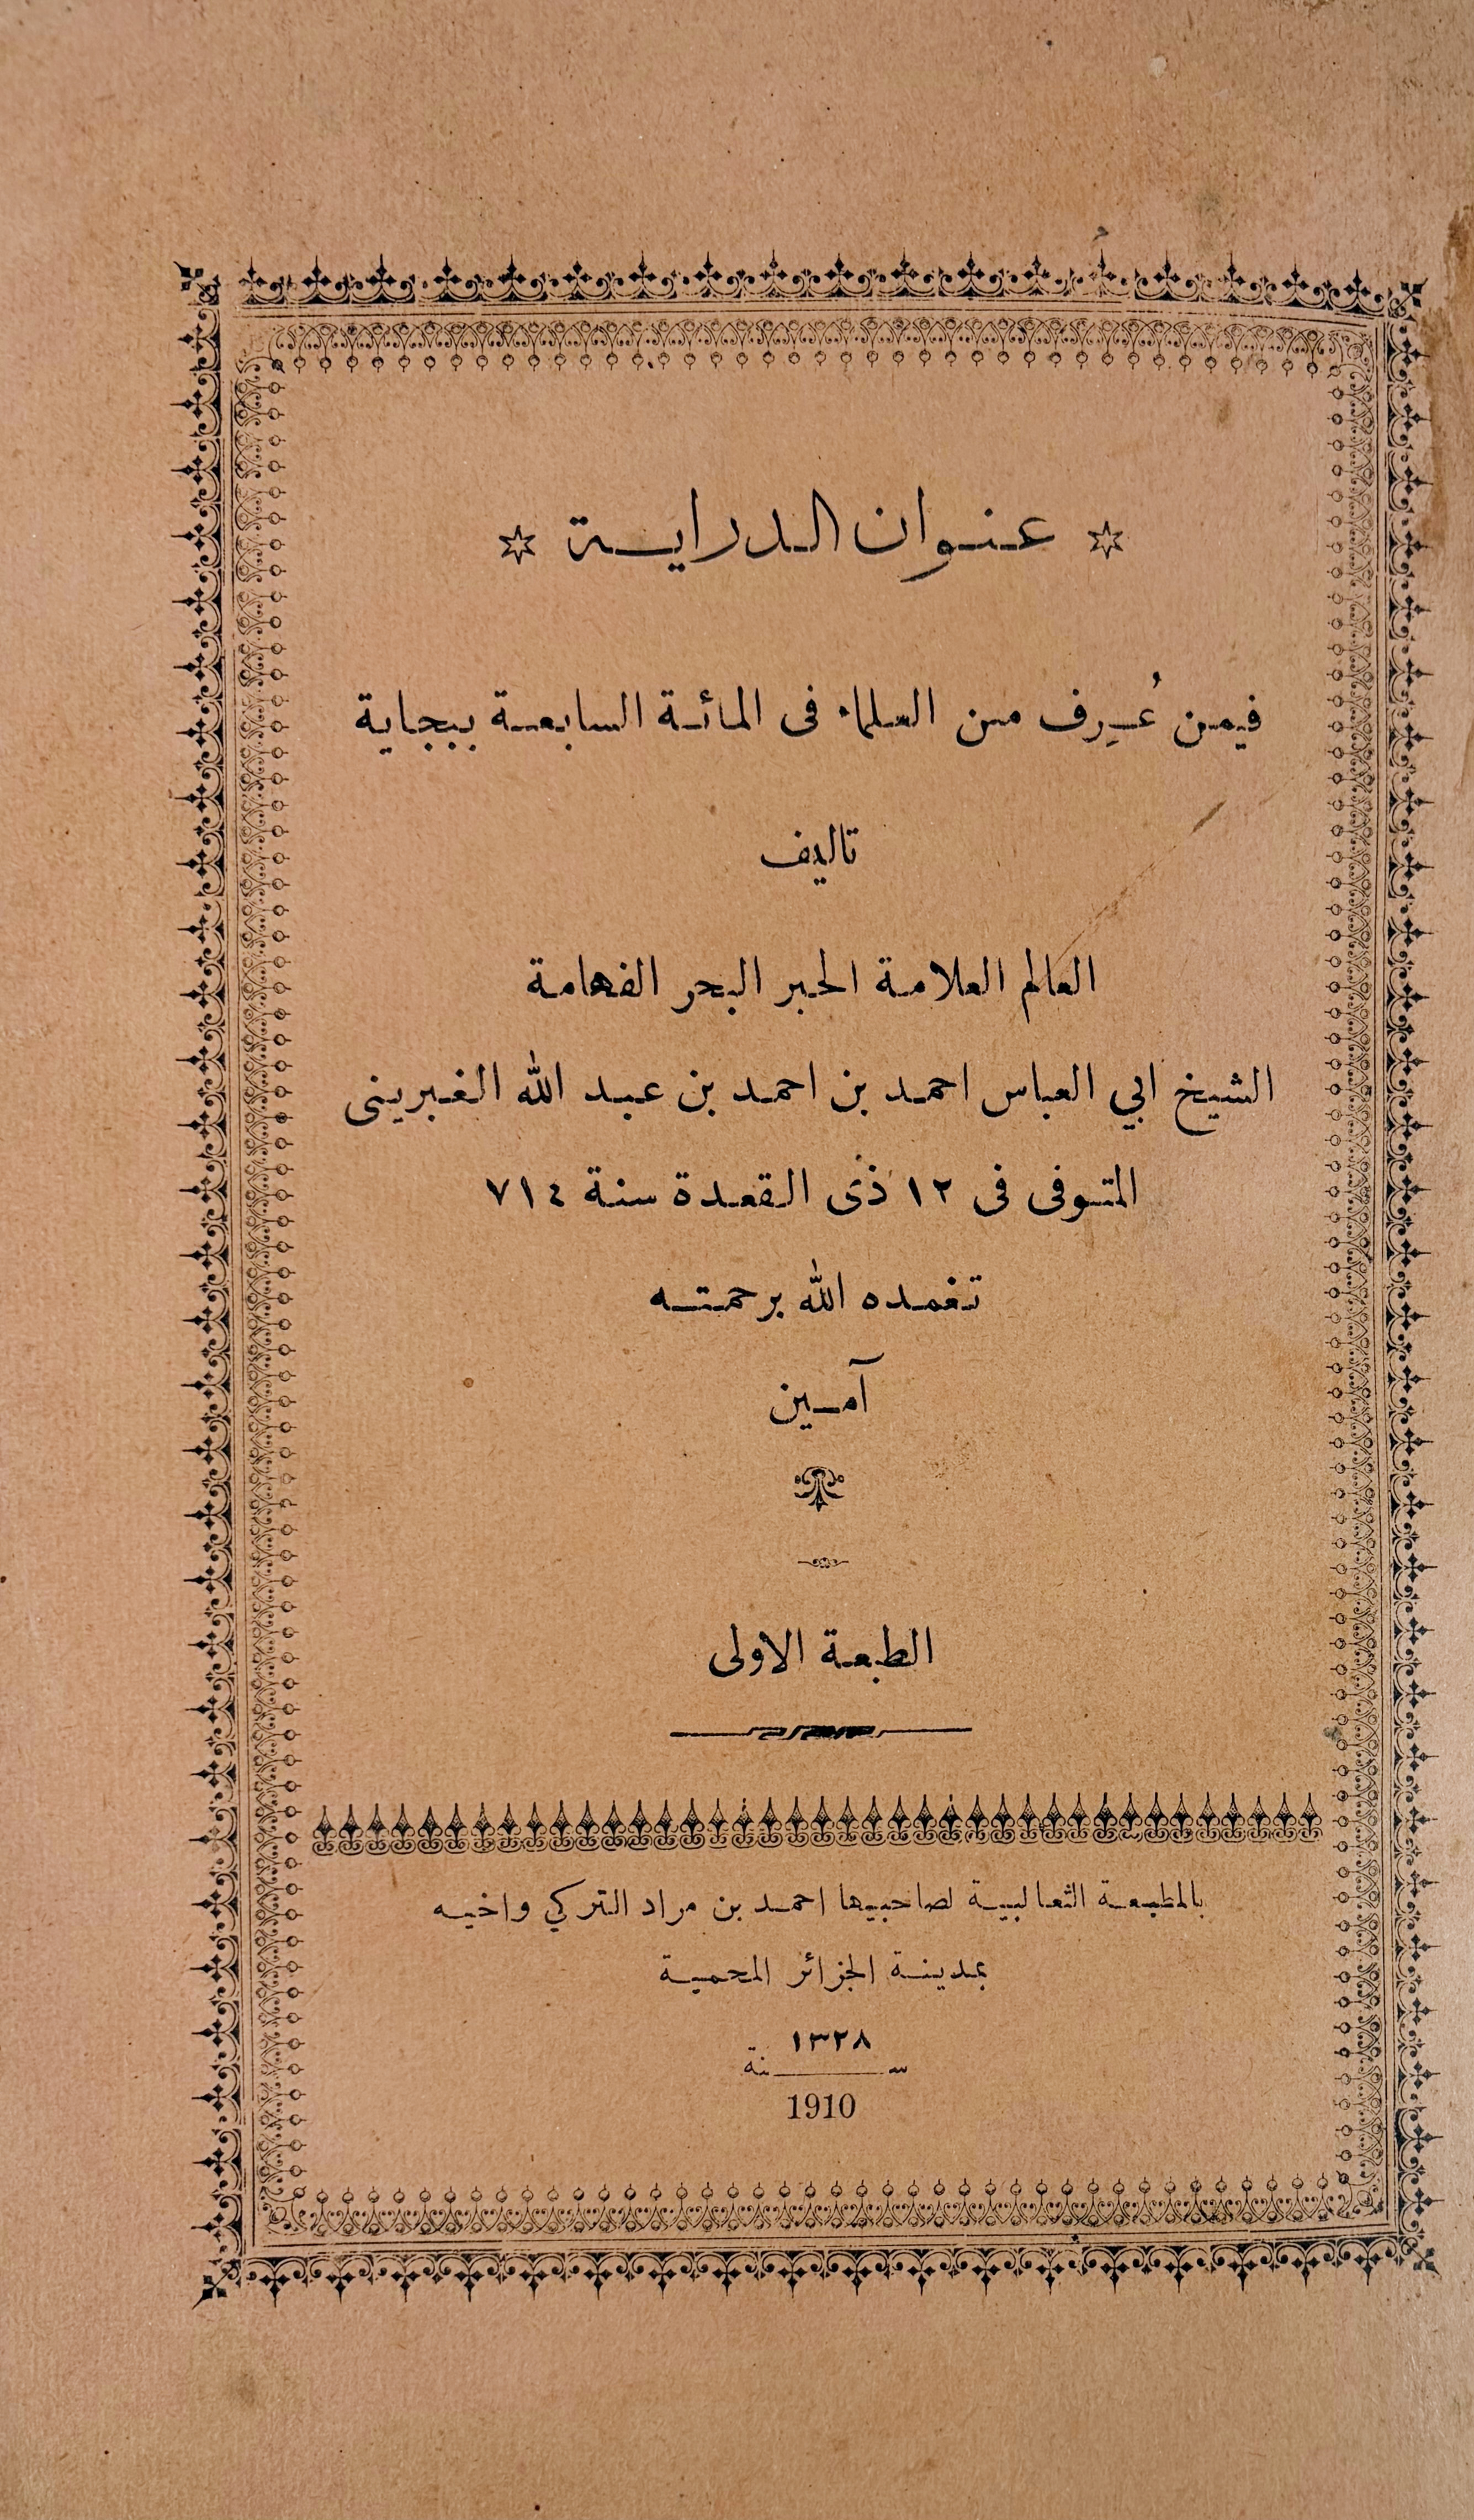 عنوان الدراية
فيمن عُرِف من العلماء فى المائة السابعة ببجاية
تاليف
العالم العلامة الحبر البحر الفهامة
الشيخ ابي العباس احمد بن احمد بن عبد الله الغبرينى
المتوفى فى ١٢ ذى القعدة سنة ٧١٤
تغمده الله برحمته
آمين
الطبعة الاولى
بالمطبعة الثعالبية لصاحبيها احمد بن مراد التركي واخيه
بمدينة الجزائر المحمية
١٣٢٨
سنة
1910